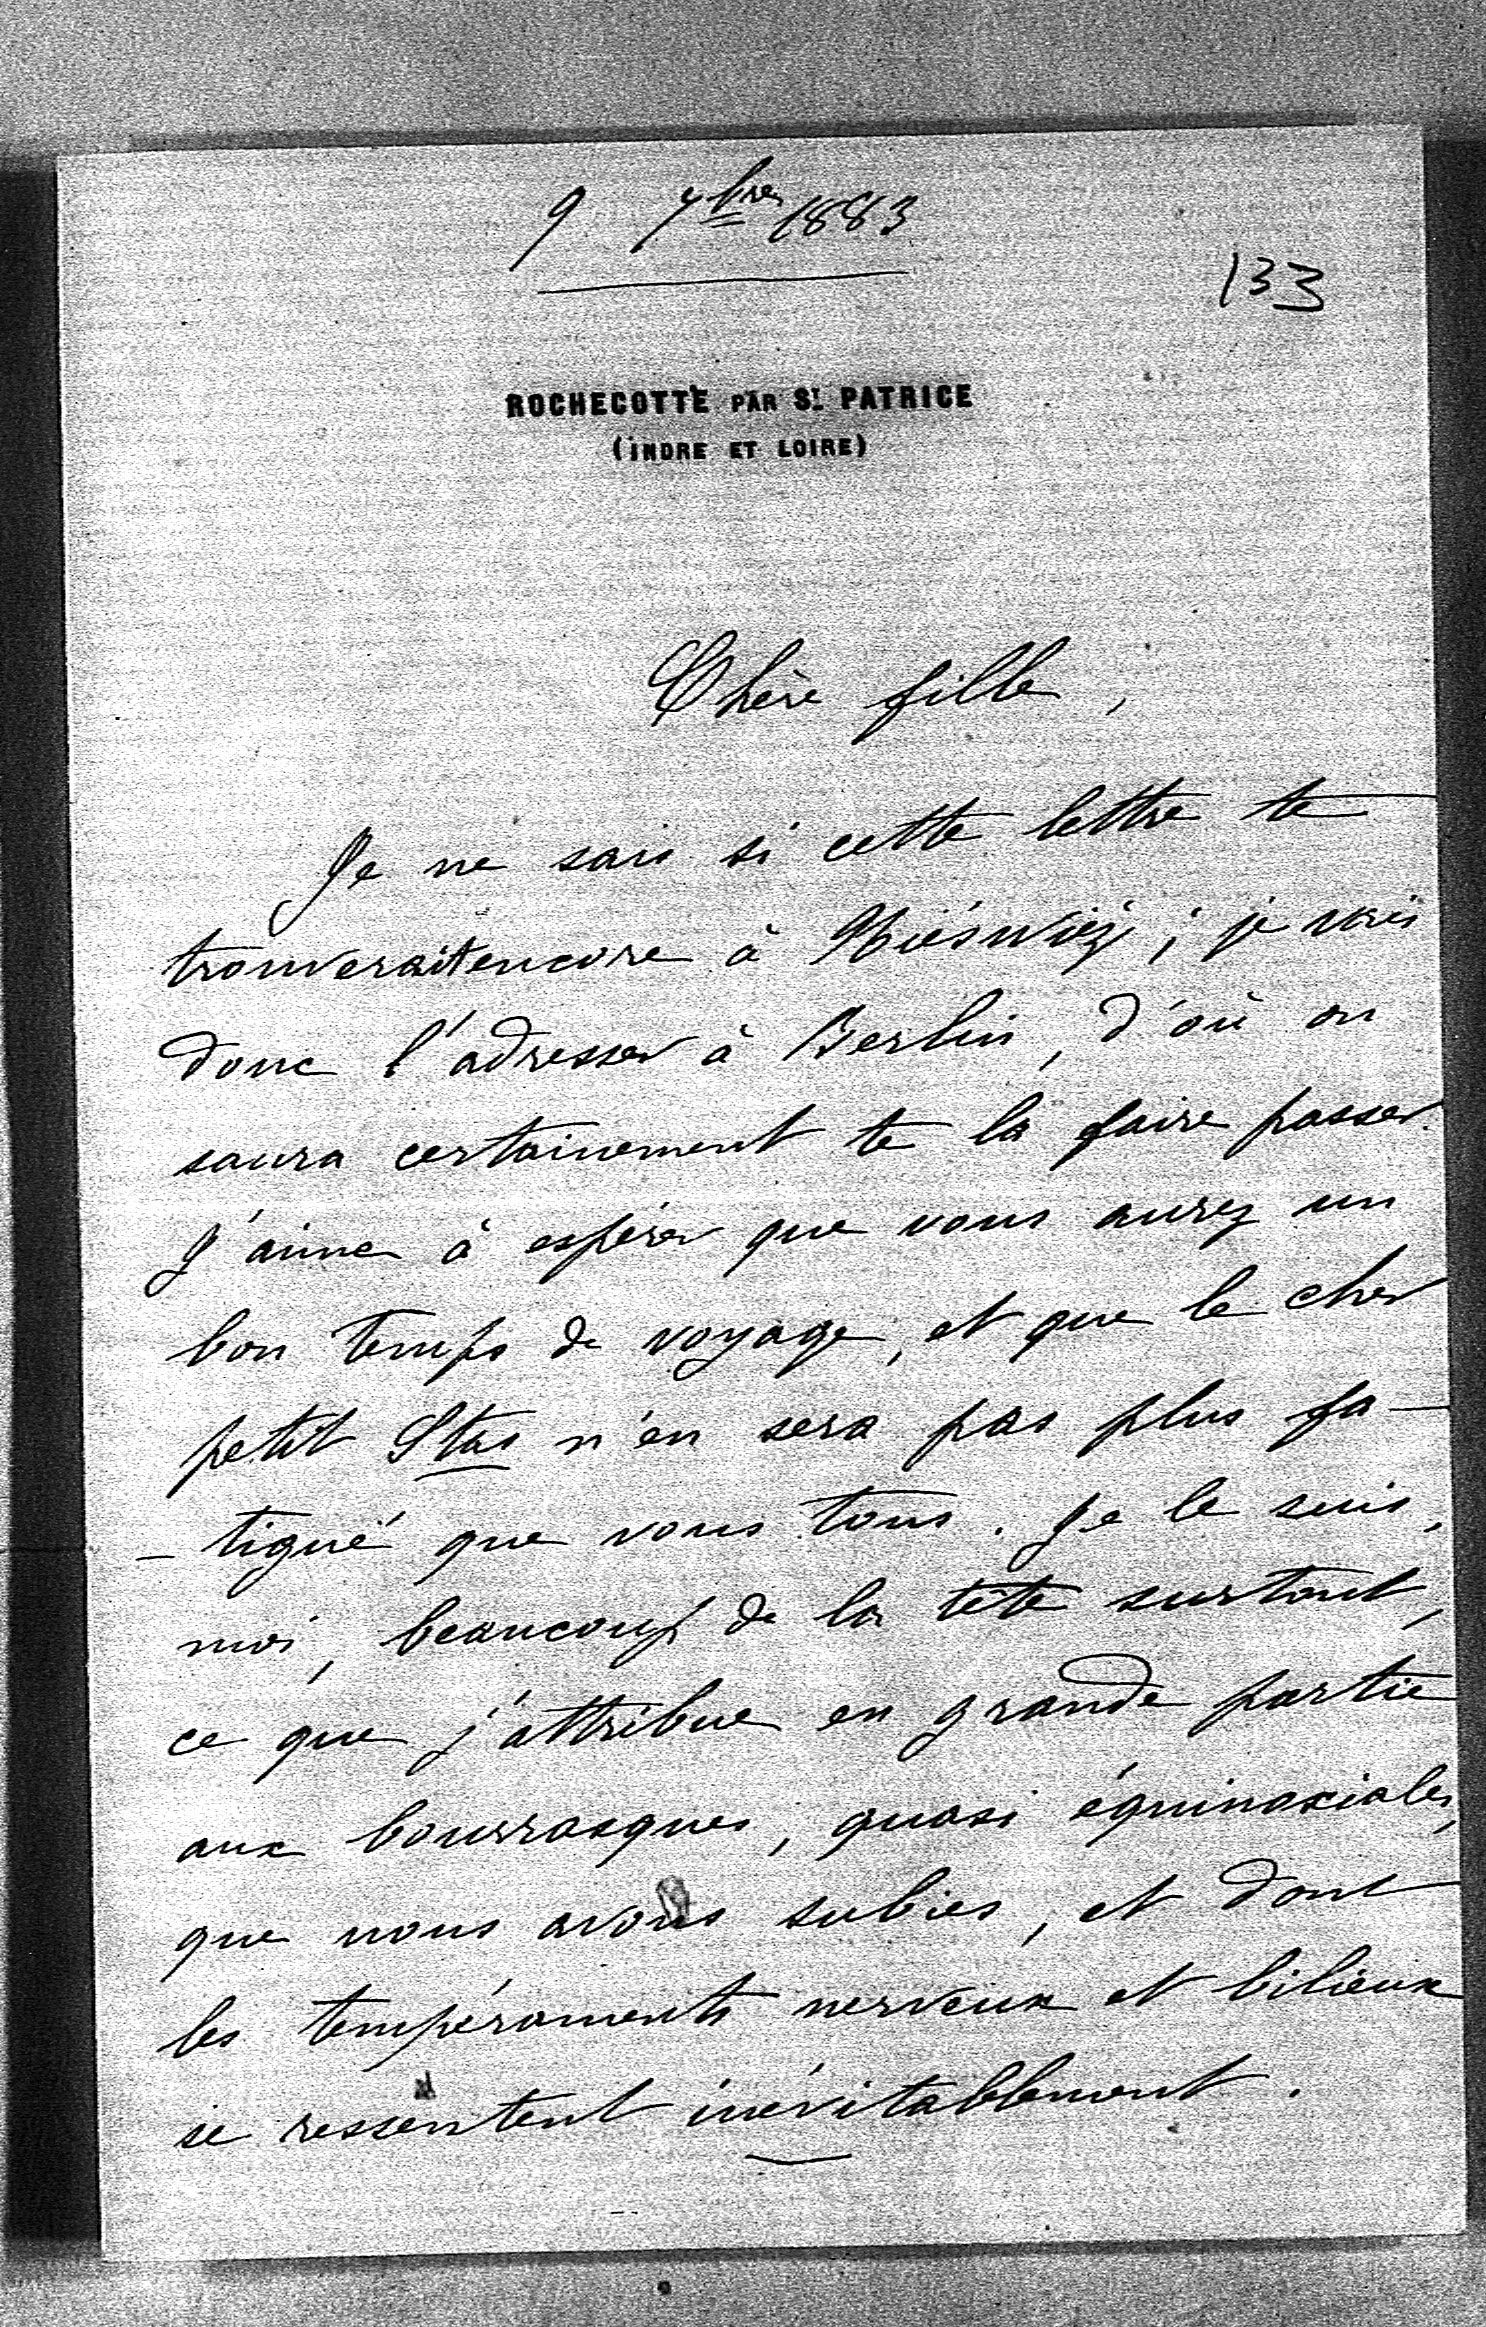 9 7bre 1883
133
ROCHECOTTE PAR ST. PATRICE
(INDRE ET LOIRE)
Chère fille,
Je ne sais si cette lettre te
trouverait encore à Nieswiéj ; je vais
donc l'adresser à Berlin, d'où on
saura certainement te la faire passer.
J'aime à espérer que vous aurez un
bon temps de voyage, et que le cher
petit Stas n'en sera pas plus fa-
-tigué que vous tous. Je le suis,
moi, beaucoup de la tête surtout,
ce que j'attribue en grande partie
aux bourrasques, quasi équinoxiales,
que nous avons subies, et dont
les tempéraments nerveux et bilieux
se ressentent inévitablement.